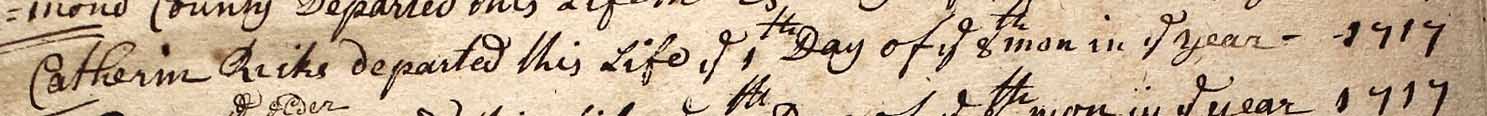 =mond County Departed this Life
Catherin Ricks departed this Life ye 1th Day of ye 8th mon in ye year - -1717
ye Elder
this life ye th Day of ye th mon in ye year 1717